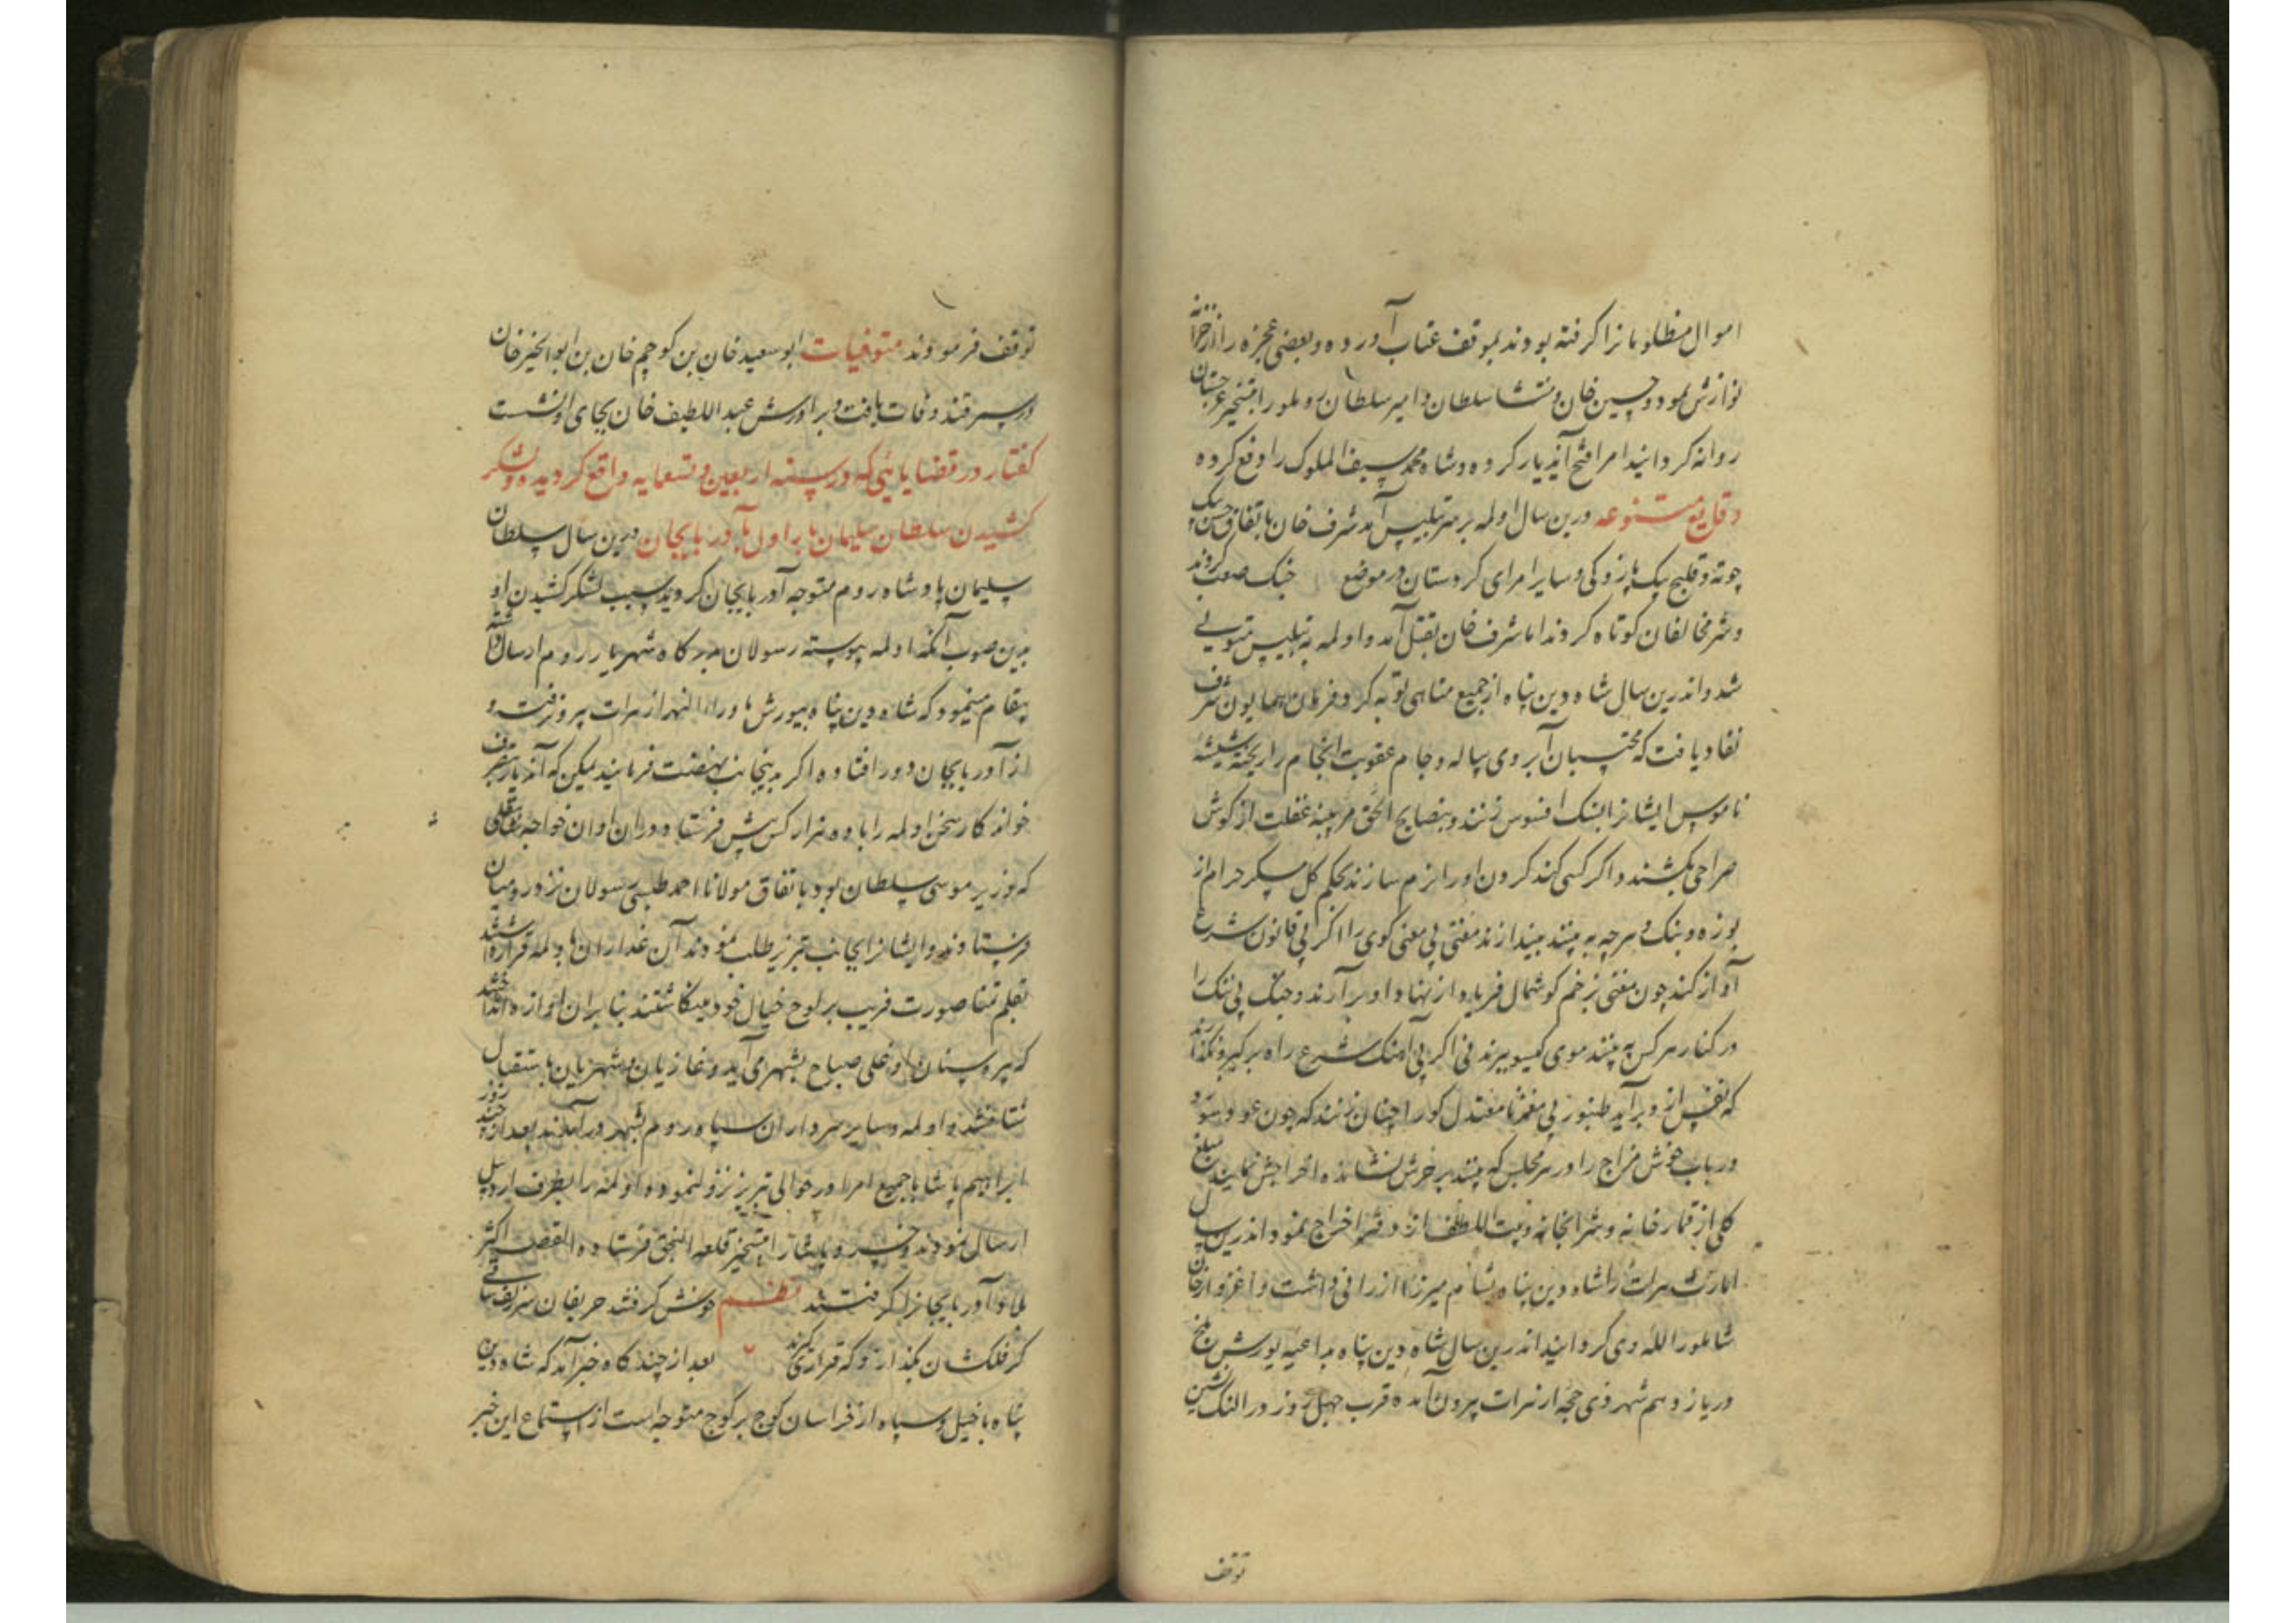 اموال مظلومانرا گرفته بودند بموقف عتاب آورده و بعضی عجزه را از خزانه
نوازش نمود و حسین خان و منتشا سلطان و امیر سلطان روملو را بتسخیر غرجستان
روانه کردانید امرا فتح آندیار کرده و شاه محمد سیف الملوک را دفع کرده
وقایع متنوعه درین سال اولمه بر سر تبلیس آمد شرف خان باتفاق
و قلیج بیک پازوکی و سایر امرای کردستان در موضع جنک صعب کردند
و شر مخالفان کوتاه کردند اما شرف خان بقتل آمد و اولمه به تبلیس
شد و اندرین سال شاه دین پناه از جمیع مناهی توبه کرد و فرمان همایون شرف
نفاد یافت که محتسبان آبروی پیاله و جام عقوبت انجام را ریخته شیشه
ناموس ایشانرا بسنک افسوس زنند و بنصایح الحق مر پنبه غفلت از کوش
صراحی بکشند و اکر کسی کند کردن اورا نرم سازند بحکم کل مسکر حرام از
بوزه و بنک و هرچه به بینند بیندازند مغنی بی معنی کوی را اکر بی قانون شرع
آواز کند چون مغنی بزخم کوشمال فریاد از نهاد او برآرند و چنک بی ننک را
در کنار هر کس به بینند موی کیسو ببرند نی اکر بی آهنک شرع راه بر کیرد نکذارند
که نفس ازو برآید طنبور بی مغز نامعتدل کور را چنان زنند که چون عود سوزد
و رباب خوش مزاج را در هر مجلس که بینند بر خرش نشانده اخراجش نمایند مبلغ
کلی از قمارخانه و شرابخانه و بیت اللطف از دفتر اخراج نمود اندرین سال
امارت هرات را شاه دین پناه بسام میرزا ارزانی داشت و اغزوار خان
شاملو را لله وی کردانید اندرین سال شاه دین پناه بداعیه یورش بلخ
در یازدهم شهر ذی حجه از هرات بیرون آمده قرب چهل روز در النک نشین
توقف
توقف فرمودند متوفیات ابو سعید خان بن کوچم خان بن ابو الخیر خان
در سمرقند وفات یافت و برادرش عبد اللطیف خان بجای او نشست
کفتار در قضایائی که در سنه اربعین و تسعمایه واقع کردیده و لشکر
کشیدن سلطان سلیمان بار اول بآذربایجان درین سال سلطان
سلیمان پادشاه روم متوجه آذربایجان کردید سبب لشکر کشیدن او
بدین صوب آنکه اولمه پیوسته رسولان بدرکاه شهریار روم ارسال داشته
پیغام مینمود که شاه دین پناه بیورش ماوراء النهر از هرات بیرون رفته و
از آذربایجان دور افتاده اکر بدینجانب نهضت فرمایند لیکن که آندیار
خواندکار بسخن اولمه را با ده هزار کس پیش فرستاد و دران اوان خواجه
که وزیر موسی سلطان بود باتفاق مولانا احمد طبسی رسولان نزد رومیان
فرستادند و ایشانرا بجانب تبریز طلب نمودند آن غداران با اولمه قرار داشتند
بقلم تمنا صورت فریب بر لوح خیال خود مینکاشتند بنابران آوازه انداختند
که اوغلی صباح بشهر می آید و غازیان و شهریان باستقبال
شتافتند و اولمه و سایر سرداران سپاه روم بشهر درآمدند بعد از چند روز
ابراهیم پاشا با جمیع امرا در حوالی تبریز نزول نموده اولمه را بطرف اردبیل
ارسال نمودند و خسرو پاشا را بتسخیر قلعه النجق فرستاده القصه اکثر
بلاد آذربایجانرا کرفتند نظم خوش کرفتند حریفان سر زلف ساقی
کر فلکشان بکذارد که قراری کیرند بعد از چند کاه خبر آمد که شاه دین
پناه با خیل و سپاه از خراسان کوچ بر کوچ متوجه است از استماع این خبر